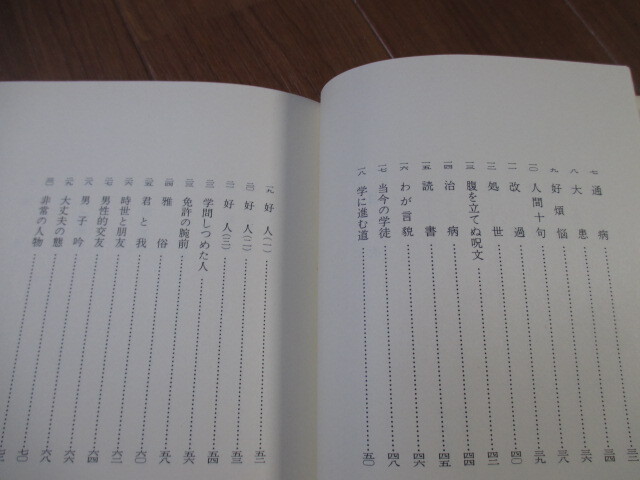 七 通病……三二
八 大患……三四
九 好煩悩……三六
一〇 人間十句……三八
一一 改過……三九
一二 処世……四〇
一三 腹を立てぬ呪文……四二
一四 治病……四四
一五 読書……四五
一六 わが言貌……四六
一七 当今の学徒……四八
一八 学に進む道……五〇
一九 好人(一)……五二
二〇 好人(二)……五三
二一 好人(三)……五四
二二 学問しつめた人……五六
二三 免許の腕前……五八
二四 雅俗……六〇
二五 君と我……六二
二六 時世と朋友……六四
二七 男性的交友……六六
二八 男子吟……六八
二九 大丈夫の懸……七〇
三〇 非常の人物……